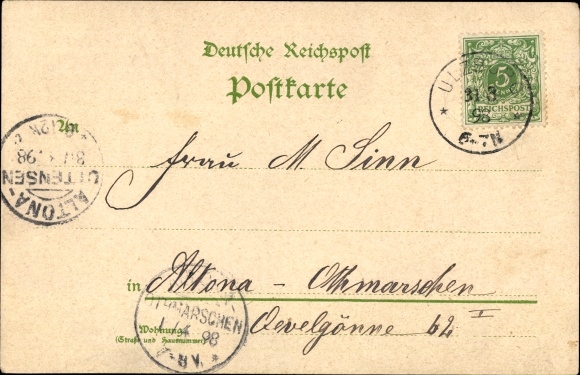 Deutsche Reichspost
Postkarte
5
REICHSPOST
31 3
98
* *
6-7N
An
Frau M. Sinn
ALTONA-
OTTENSEN
98
in Altona - Othmarschen
Oevelgönne 62 I
Wohnung
(Straße und Hausnummer)
OTHMARSCHEN
1 4 98
*